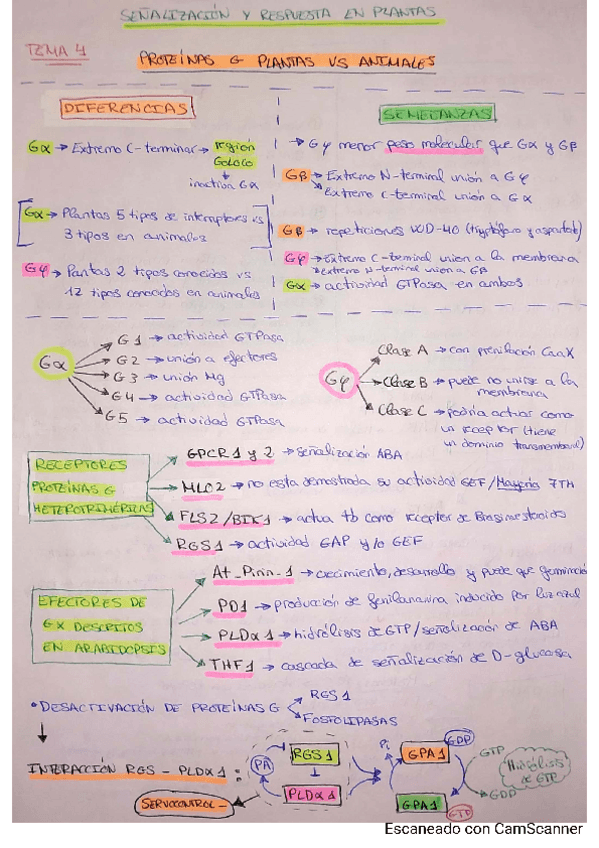 SEÑALIZACIÓN Y RESPUESTA EN PLANTAS
TEMA 4
PROTEÍNAS G PLANTAS VS ANIMALES
DIFERENCIAS
Gα → Extremo C-terminar → región
GoLoco
inactiva Gα
Gα → Plantas 5 tipos de interruptores vs
3 tipos en animales
Gφ → Pantas 2 tipos conocidos vs
12 tipos conocidos en animales
SEMEJANZAS
→ Gφ menor peso molecular que Gα y Gβ
Gβ → Extremo N-terminal unión a Gφ
→ extremo C-terminal unión a Gα
Gβ → repeticiones WD-40 (tryptófano y aspartato)
Gφ → Extremo C-terminal union a la membrana
→ extremo N-terminal union a Gβ
Gα → actividad GTPasa en ambos
Gα
G1 → actividad GTPasa
G2 → unión a efectores
G3 → unión Mg
G4 → actividad GTPasa
G5 → actividad GTPasa
Gφ
Clase A → con prenilación CaaX
Clase B → puede no unirse a la
membrana
Clase C → podría actuar como
un receptor (tiene
un dominio transmembrana)
RECEPTORES
PROTEÍNAS G
HETEROTRIMÉRICAS
GPCR 1 y 2 → señalización ABA
MLO2 → no esta demostrada su actividad GEF/Mayoría 7TM
FLS2/BIK1 → actua tb como receptor de Brasinosteroides
RGS1 → actividad GAP y/o GEF
EFECTORES DE
Gα DESCRITOS
EN ARABIDOPSIS
At_Pirin_1 → crecimiento, desarrollo y puede que germinación
PD1 → producción de fenilalanina inducido por luz azul
PLDα1 → hidrólisis de GTP/señalización de ABA
THF1 → cascada de señalización de D-glucosa
• DESACTIVACIÓN DE PROTEÍNAS G
RGS1
FOSFOLIPASAS
INTERACCIÓN RGS - PLDα1 :
SERVOCONTROL -
PA
RGS1
PLDα1
Pi
GPA1
GDP
GPA1
GTP
GTP
GDP
Hidrólisis
de GTP
Escaneado con CamScanner